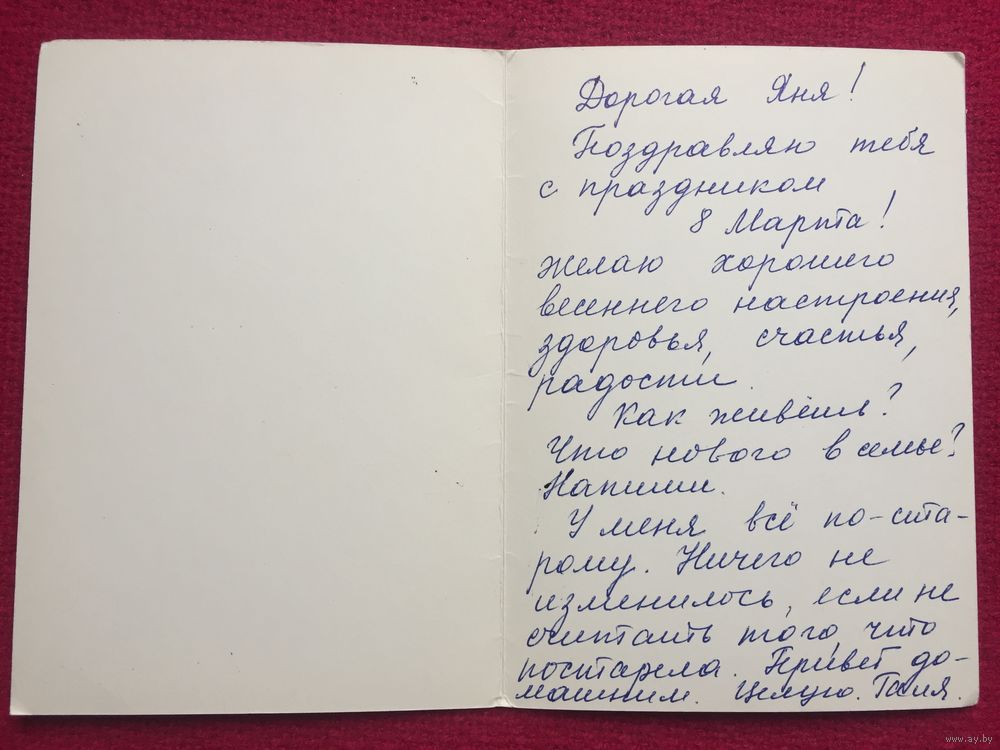 Дорогая Яня!
Поздравляю тебя
с праздником
8 Марта!
Желаю хорошего
весеннего настроения,
здоровья, счастья,
радости.
Как живёшь?
Что нового в семье?
Напиши.
У меня всё по-ста-
рому. Ничего не
изменилось, если не
считать того, что
постарела. Привет до-
машним. Целую. Галя.
www.ay.by